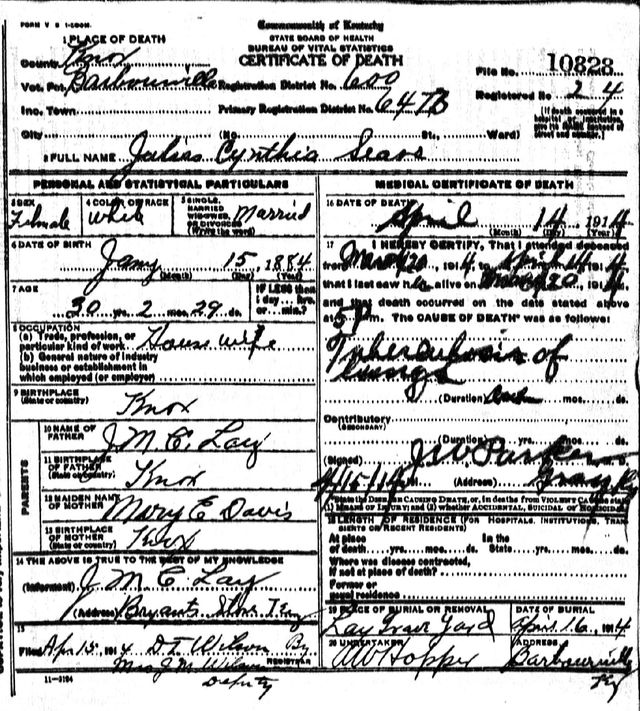 FORM V S 1-100M.
Commonwealth of Kentucky
STATE BOARD OF HEALTH
BUREAU OF VITAL STATISTICS
CERTIFICATE OF DEATH
1 PLACE OF DEATH
County Knox
Vot. Pct. Barbourville Registration District No. 600
File No. 10828
Registered No. 24
Inc. Town Primary Registration District No.
[If death occurred in a hospital or institution, give its NAME instead of street and number.]
City (No. St., Ward)
2 FULL NAME Julias Cynthia Sears
PERSONAL AND STATISTICAL PARTICULARS
3 SEX Female
4 COLOR OR RACE White
5 SINGLE, MARRIED WIDOWED, OR DIVORCED (Write the word) Married
6 DATE OF BIRTH
Jany 15, 1884
(Month) (Day) (Year)
7 AGE
30 yrs. 2 mos. 29 ds.
IF LESS than 1 day... hrs. or... min.?
8 OCCUPATION
(a) Trade, profession, or particular kind of work House wife
(b) General nature of industry
business or establishment in
which employed (or employer)
9 BIRTHPLACE
(State or country) Knox
PARENTS
10 NAME OF FATHER J. M. C. Lay
11 BIRTHPLACE OF FATHER (State or country) Knox
12 MAIDEN NAME OF MOTHER Mary E Davis
13 BIRTHPLACE OF MOTHER (State or country) Knox
14 THE ABOVE IS TRUE TO THE BEST OF MY KNOWLEDGE
(Informant) J. M. C. Lay
(Address) Bryants Store Ky
15
Filed Apr 15, 1914 D. I. Wilson By
Mrs J. M. Wilson REGISTRAR
Deputy
11-3184
MEDICAL CERTIFICATE OF DEATH
16 DATE OF DEATH
April 14 1914
(Month) (Day) (Year)
17 I HEREBY CERTIFY, That I attended deceased
from March 20, 1914, to April 14, 1914
that I last saw h alive on March 20, 191
and that death occurred on the date stated above
at 5 P m. The CAUSE OF DEATH* was as follows:
Tuberculosis of
lungs
(Duration) yrs. mos. ds.
Contributory
(SECONDARY)
(Duration) yrs. mos. ds.
(Signed) J W Parker
4/15, 1914 (Address) Gray Ky
*State the DISEASE CAUSING DEATH, or, in deaths from VIOLENT CAUSES state
(1) MEANS OF INJURY; and (2) whether ACCIDENTAL, SUICIDAL OR HOMICIDAL
18 LENGTH OF RESIDENCE (FOR HOSPITALS, INSTITUTIONS, TRANSIENTS OR RECENT RESIDENTS)
At place of death yrs. mos. ds. In the State yrs. mos. ds.
Where was disease contracted,
if not at place of death?
Former or
usual residence
19 PLACE OF BURIAL OR REMOVAL
Lay Grave Yard
DATE OF BURIAL
April 16, 1914
20 UNDERTAKER
A W Hopper
ADDRESS
Barbourville
Ky